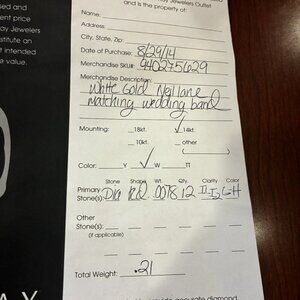 ent and
ced price
ay Jewelers
stitute an
t intended
e value.
A Y
ay Jewelers Outlet
and is the property of:
Name:
Address:
City, State, Zip:
Date of Purchase: 8/29/14
Merchandise SKU#: 940275629
Merchandise Description:
White Gold Neil Lane
matching wedding band
Mounting: 18kt. ✓14kt.
10kt. other
( )
Color: Y ✓W TT
Stone Shape Wt. Qty. Clarity Color
Primary Stone(s): Dia Rd .0178 12 I1 G-H
Other
Stone(s):
(if applicable)
Total Weight: .21
accurate diamond